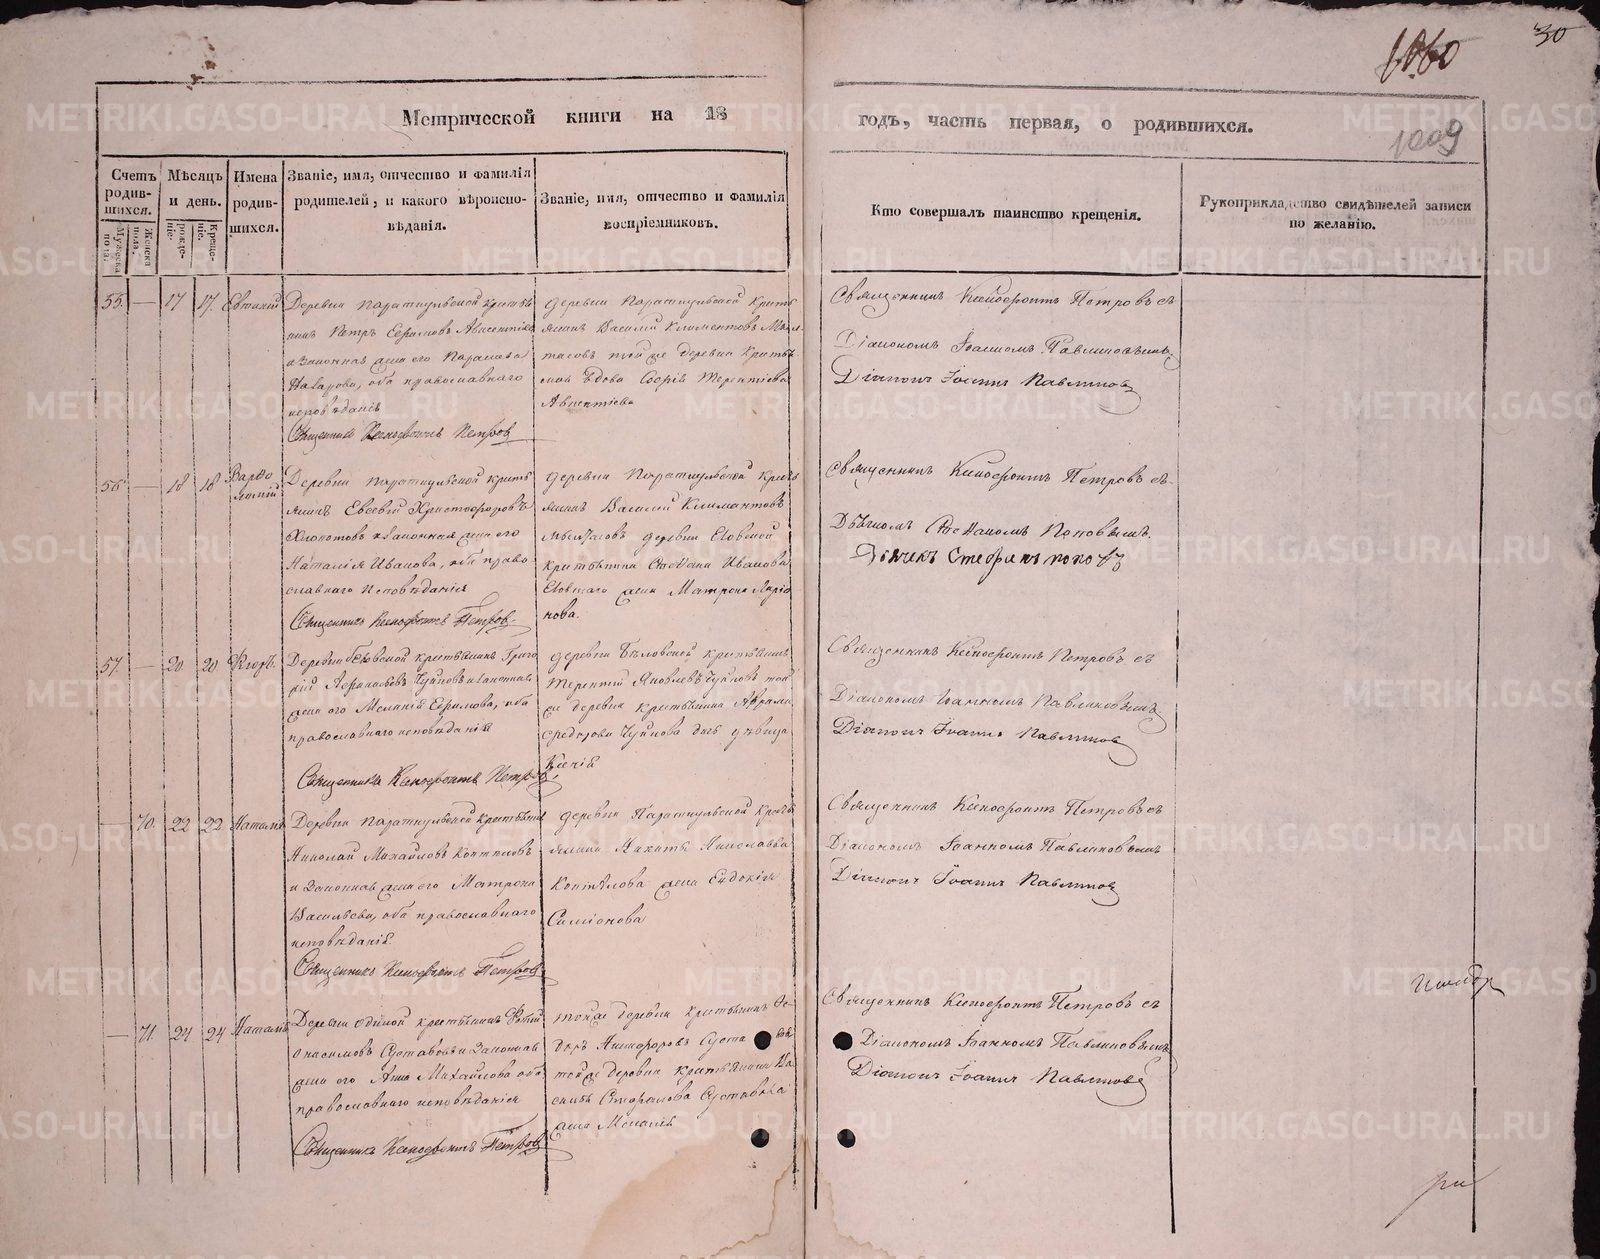 30
1060
Метрической книги на 18 годъ, часть первая, о родившихся.
1009
Счетъ родив-шихся.
Мужеска пола.
Женска пола.
Мѣсяцъ и день.
рожде-ніе.
креще-ніе.
Имена родив-шихся.
Званіе, имя, отчество и фамилія
родителей, и какого вѣроиспо-
вѣданія.
Званіе, имя, отчество и фамилія
воспріемниковъ.
Кто совершалъ таинство крещенія.
Рукоприкладство свидѣтелей записи
по желанію.
55. — 17 17. Евтихій
Деревни Параткульской крестья
нинъ Петръ Ефимовъ
и законная жена его Параскева
Назарова, оба православнаго
исповѣданія
Священникъ Ксенофонтъ Петров
деревни Параткульской кресть
янинъ Василій Климентовъ
той же деревни кресть
вдова Софія Терентіева
Авксентіева
Священникъ Ксенофонтъ Петровъ съ
Діакономъ Іоанномъ Павлиновымъ
Діаконъ Іоаннъ Павлиновъ
56 — 18 18 Варѳо
ломій
Деревни Параткульской кресть
янинъ Евсевій Христофоровъ
Хлопотовъ и законная жена его
Наталія Иванова, оба право
славнаго исповѣданія
Священникъ Ксенофонтъ Петров
деревни Параткульской кресть
янинъ Василій Климантовъ
деревни
крестьянина Стефана Иванова
жена Матрона Ларіо
нова.
Священникъ Ксенофонтъ Петровъ съ
Дьячкомъ Стефаномъ Поповымъ.
Дьячекъ Стефанъ поповъ
57. — 20 20. Егоръ
Деревни Бѣловской крестьянинъ Григо
рій Чуйновъ и законная
жена его Меланія Ефимова, оба
православнаго исповѣданія
Священникъ Ксенофонтъ Петров
деревни Бѣловской крестьянинъ
Терентій Яковлевъ Чуйновъ той
же деревни крестьянина Аврама
Чуйнова дочь дѣвица
Ксенія
Священникъ Ксенофонтъ Петровъ съ
Діакономъ Іоанномъ Павлиновымъ
Діаконъ Іоаннъ Павлинов
— 70. 22 22 Наталія
Деревни Параткульской крестьянинъ
Николай Михайловъ Коптяловъ
и законная жена его Матрона
Васильева, оба православнаго
исповѣданія.
Священникъ Ксенофонтъ Петров
деревни Параткульской кресть
янина Никиты Николаева
Коптѣлова жена Евдокія
Симіонова
Священникъ Ксенофонтъ Петровъ съ
Діакономъ Іоанномъ Павлиновымъ
Діаконъ Іоаннъ Павлинов
— 71. 24 24 Наталія
Деревни Одиной крестьянинъ
Онисимовъ и законная
жена его Анна Михайлова оба
православнаго исповѣданія
Священникъ Ксенофонтъ Петров
тойже деревни крестьянинъ Ѳе-
доръ Никифоровъ
тойже деревни крестьянина Ва
жена Меланія
Священникъ Ксенофонтъ Петровъ съ
Діакономъ Іоанномъ Павлиновымъ
Діаконъ Іоаннъ Павлиновъ
METRIKI.GASO-URAL.RU